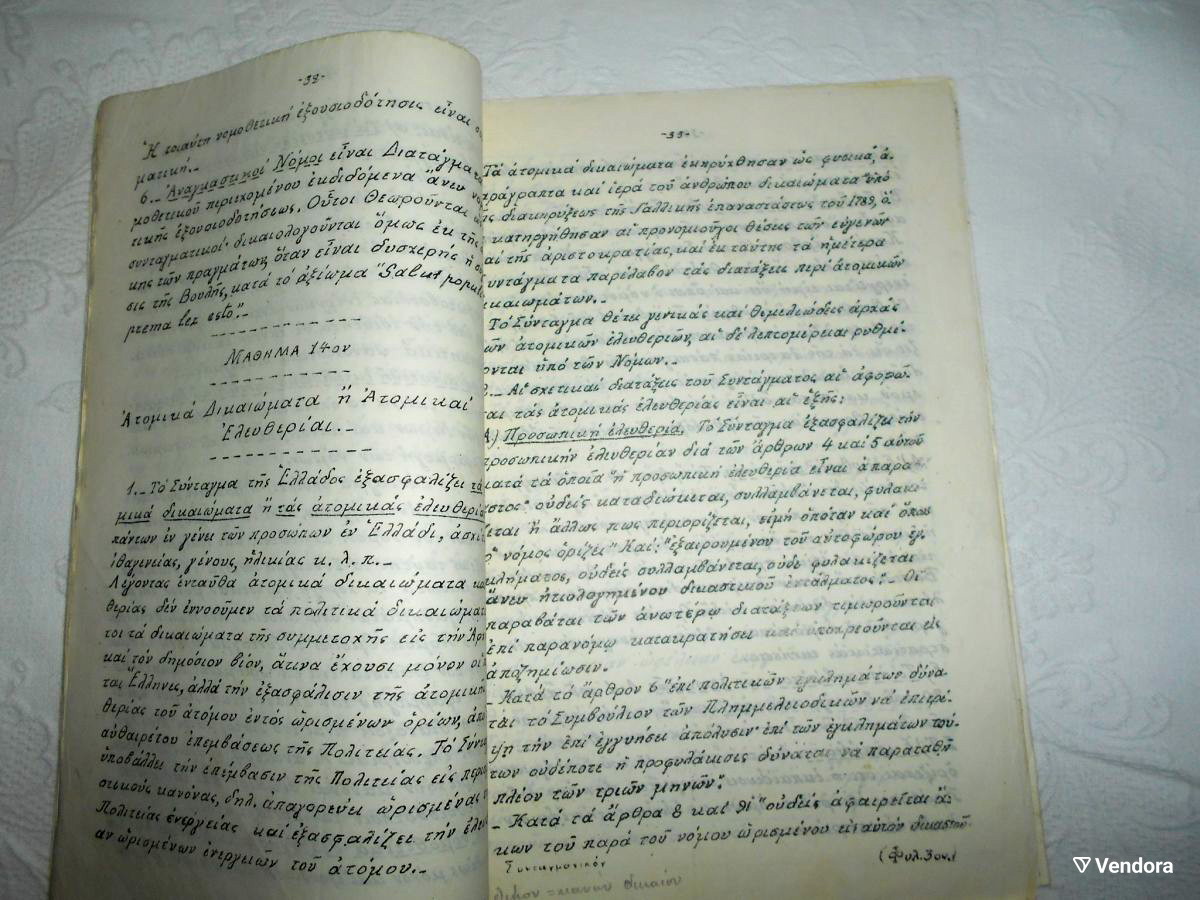 -32-
Ἡ τοιαύτη νομοθετική ἐξουσιοδότησις εἶναι
ματική.-
6.- Ἀναγκαστικοί Νόμοι εἶναι Διατάγματα
μοθετικοῦ περιεχομένου ἐκδιδόμενα ἄνευ νο
τικῆς ἐξουσιοδοτήσεως. Οὗτοι θεωροῦνται
συνταγματικοί. δικαιολογοῦνται ὅμως ἐκ τῆς
κης τῶν πραγμάτων, ὅταν εἶναι δυσχερής ἡ
σις τῆς Βουλῆς, κατά τό ἀξίωμα "Salut popul
prema lex esto".-
ΜΑΘΗΜΑ 14ον
Ἀτομικά Δικαιώματα ἤ Ἀτομικαί
Ἐλευθερίαι.-
1.- Τό Σύνταγμα τῆς Ἑλλάδος ἐξασφαλίζει τά
μικά δικαιώματα ἤ τάς ἀτομικάς ἐλευθερία
πάντων ἐν γένει τῶν προσώπων ἐν Ἑλλάδι, ἀσχέ
ἰθαγενείας, γένους, ἡλικίας κ. λ. π.-
Λέγοντας ἐνταῦθα ἀτομικά δικαιώματα κα
θερίας δέν ἐννοοῦμεν τά πολιτικά δικαιώματ
τοι τά δικαιώματα τῆς συμμετοχῆς εἰς τήν Ἀρχ
καί τόν δημόσιον βίον, ἅτινα ἔχουσι μόνον οἱ π
ται Ἕλληνες, ἀλλά τήν ἐξασφάλισιν τῆς ἀτομικῆς
θερίας τοῦ ἀτόμου ἐντός ὡρισμένων ὁρίων, ἀπό
αὐθαιρέτου ἐπεμβάσεως τῆς Πολιτείας. Τό Σύντ
ὑποβάλλει τήν ἐπέμβασιν τῆς Πολιτείας εἰς περιο
στικούς κανόνας, δηλ. ἀπαγορεύει ὡρισμένας
Πολιτείας ἐνεργείας καί ἐξασφαλίζει τήν ἐλευ
αν ὡρισμένων ἐνεργειῶν τοῦ ἀτόμου.-
-33-
Τά ἀτομικά δικαιώματα ἐκηρύχθησαν ὡς φυσικά, ἀ-
παράγραπτα καί ἱερά τοῦ ἀνθρώπου δικαιώματα ὑπό
ῆς διακηρύξεως τῆς Γαλλικῆς ἐπαναστάσεως τοῦ 1789, ὅ-
κατηργήθησαν αἱ προνομιοῦχοι θέσεις τῶν εὐγενῶν
αί τῆς ἀριστοκρατίας, καί ἐκ ταύτης τά ἡμέτερα
υντάγματα παρέλαβον τάς διατάξεις περί ἀτομικῶν
ικαιωμάτων.-
Τό Σύνταγμα θέτει γενικάς καί θεμελιώδεις ἀρχάς
ῶν ἀτομικῶν ἐλευθεριῶν, αἱ δέ λεπτομέρειαι ρυθμί-
ονται ὑπό τῶν Νόμων.-
2.- Αἱ σχετικαί διατάξεις τοῦ Συντάγματος αἱ ἀφορῶ-
αι τάς ἀτομικάς ἐλευθερίας εἶναι αἱ ἑξῆς:
Α) Προσωπική ἐλευθερία. Τό Σύνταγμα ἐξασφαλίζει τήν
προσωπικήν ἐλευθερίαν διά τῶν ἄρθρων 4 καί 5 αὐτοῦ
κατά τά ὁποῖα "ἡ προσωπική ἐλευθερία εἶναι ἀπαρα-
στος· οὐδείς καταδιώκεται, συλλαμβάνεται, φυλακί-
ζεται ἤ ἄλλως πως περιορίζεται, εἰμή ὁπόταν καί ὅπως
ὁ νόμος ὁρίζει" Καί: "ἐξαιρουμένου τοῦ αὐτοφώρου ἐγ-
κλήματος, οὐδείς συλλαμβάνεται, οὐδέ φυλακίζεται
ἄνευ ἠτιολογημένου δικαστικοῦ ἐντάλματος".- Οἱ
παραβάται τῶν ἀνωτέρω διατάξεων τιμωροῦνται
ἐπί παρανόμῳ κατακρατήσει καί ὑποχρεοῦνται εἰς
ἀποζημίωσιν.
- Κατά τό ἄρθρον 6 "ἐπί πολιτικῶν ἐγκλημάτων δύνα-
ται τό Συμβούλιον τῶν Πλημμελειοδικῶν νά ἐπιτρέ-
ψῃ τήν ἐπί ἐγγυήσει ἀπόλυσιν· ἐπί τῶν ἐγκλημάτων τού-
των οὐδέποτε ἡ προφυλάκισις δύναται νά παραταθῇ
πλέον τῶν τριῶν μηνῶν".
- Κατά τά ἄρθρα 8 καί 91 "οὐδείς ἀφαιρεῖται ἄ-
κων τοῦ παρά τοῦ νόμου ὡρισμένου εἰς αὐτόν δικαστοῦ
(Φυλ. 3ον.)
δικαίου
Vendora